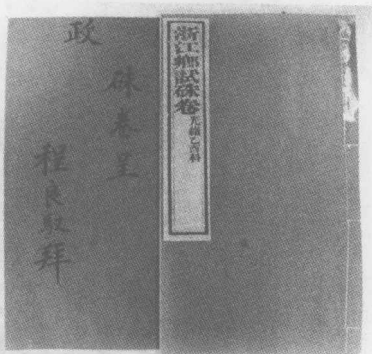 浙江鄉試硃卷光緒乙酉科
硃卷呈
政
程良馭拜